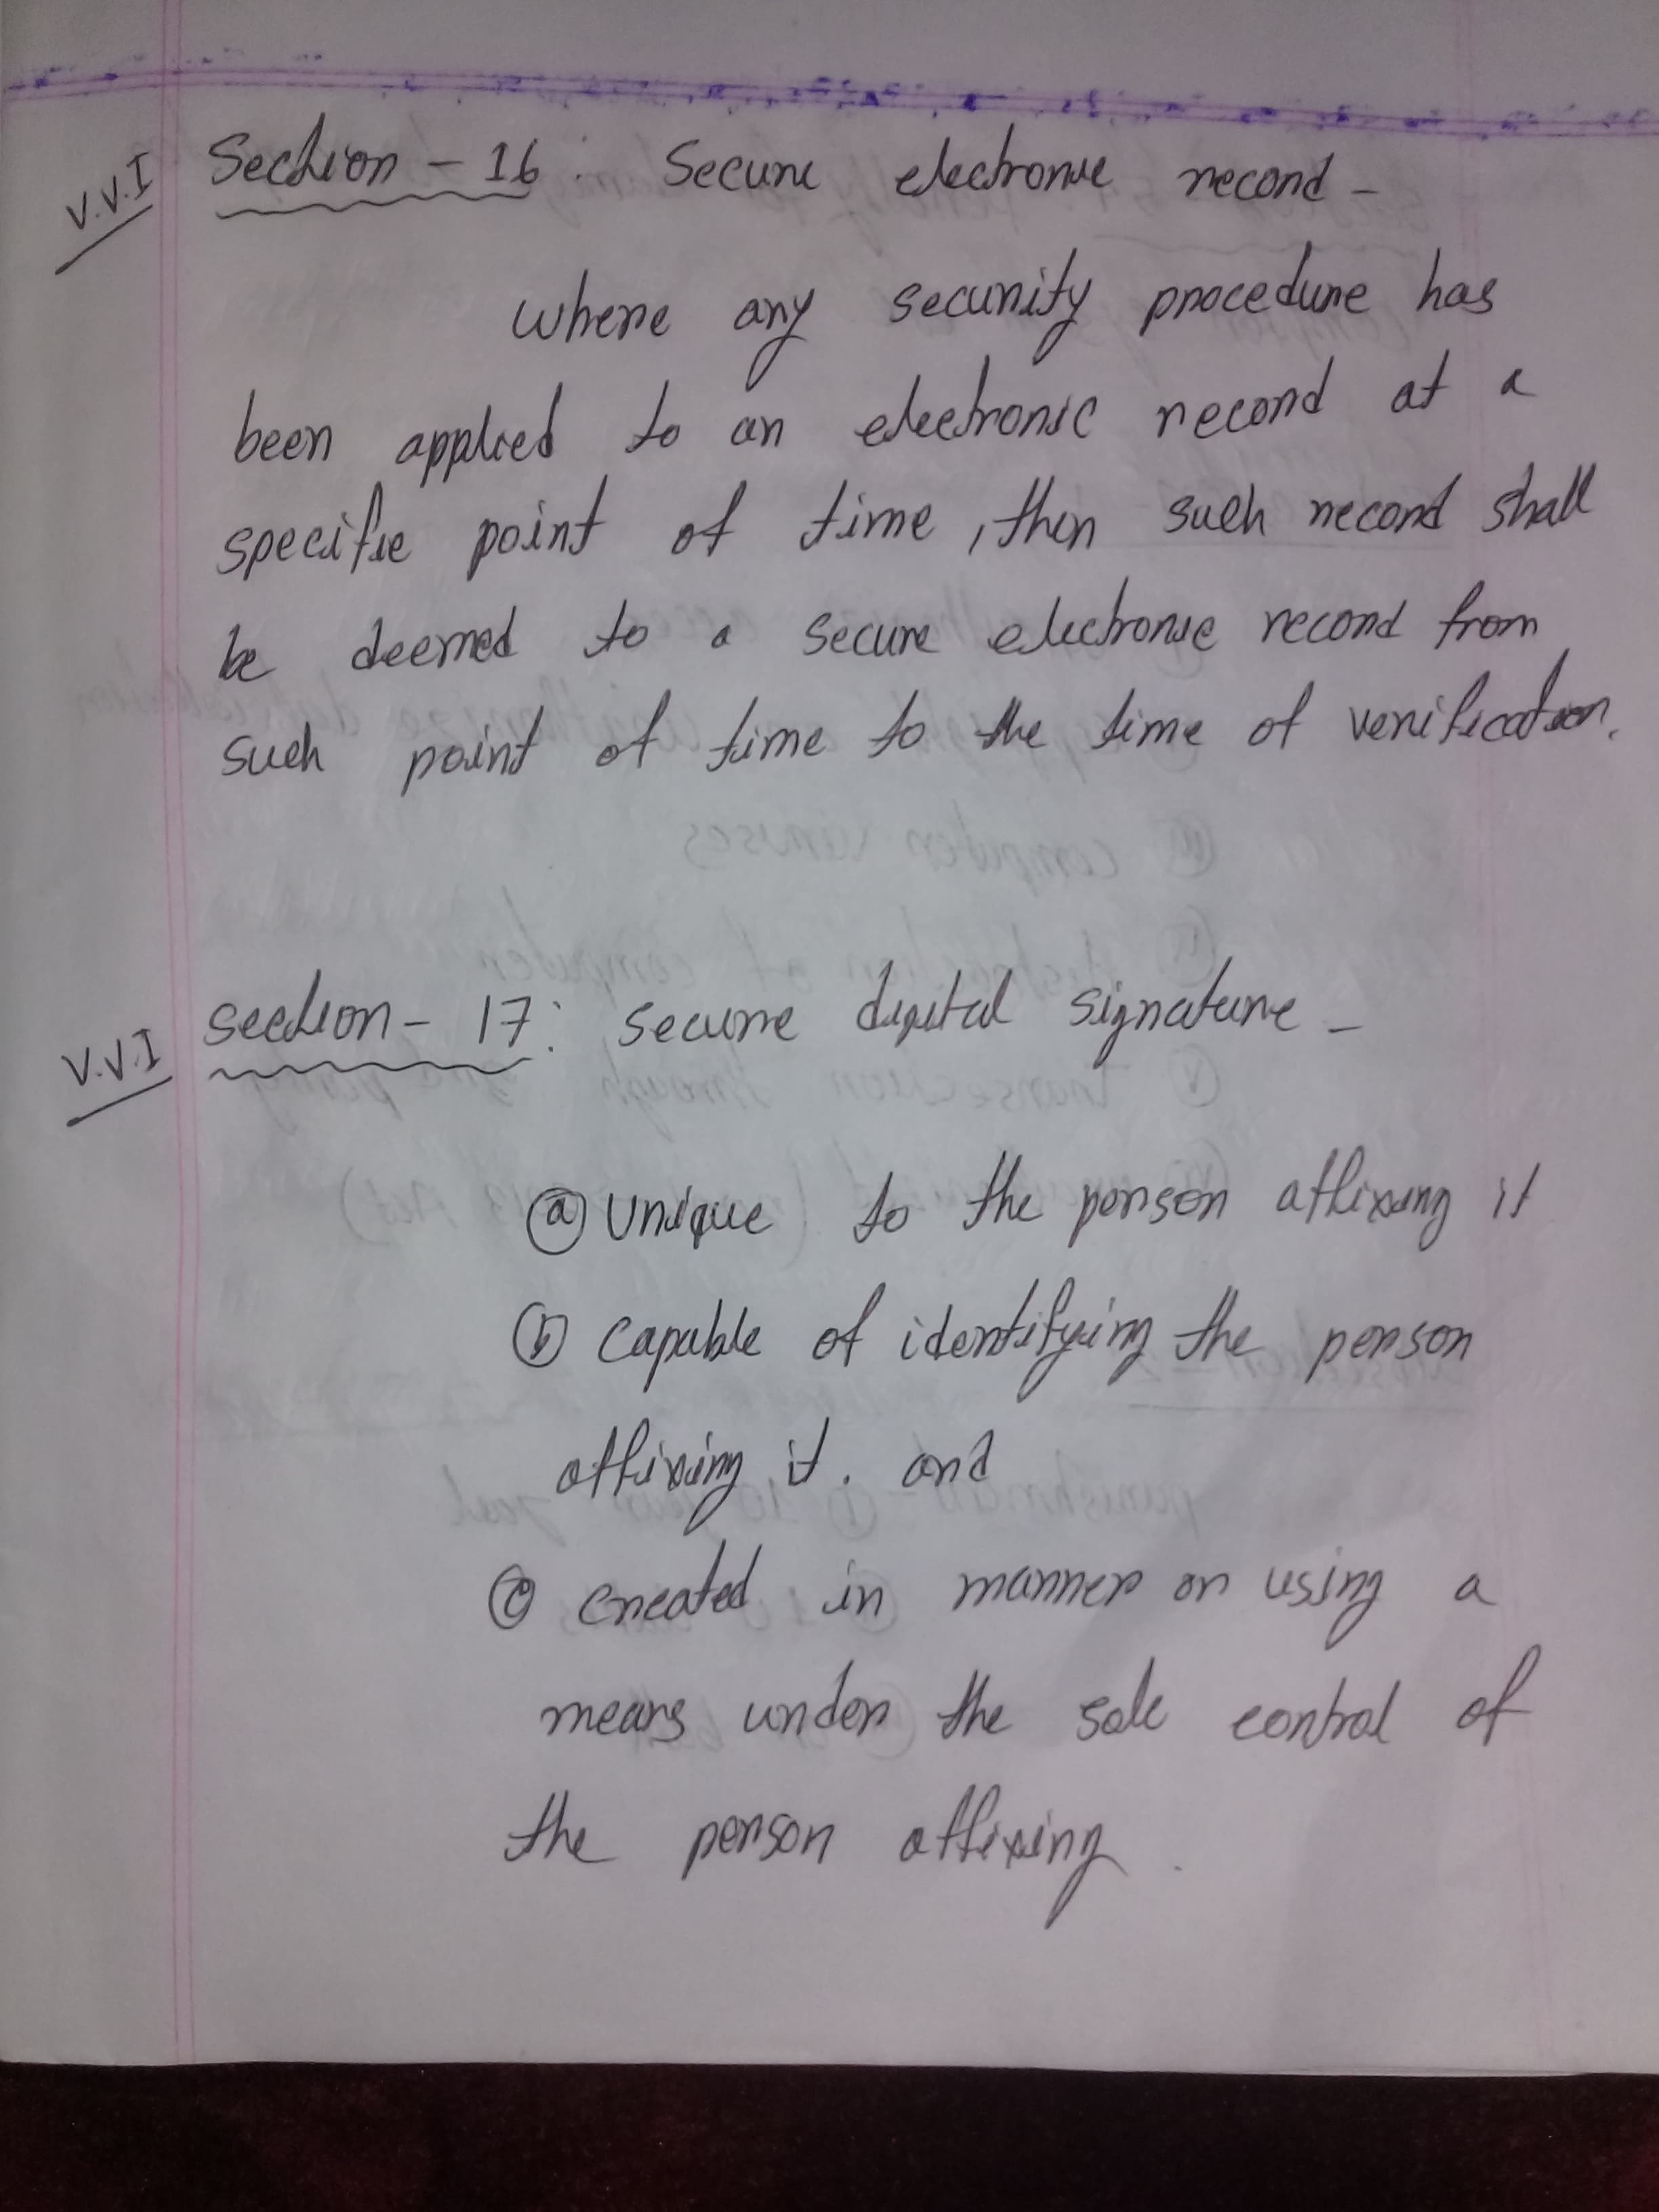 V.V.I Section - 16 : Secure electronic record -
where any security procedure has
been applied to an electronic record at a
specific point of time, then such record shall
be deemed to a secure electronic record from
such point of time to the time of verification.
V.V.I section - 17 : secure digital signature -
ⓐ Unique to the person affixing it
ⓑ capable of identifying the person
affixing it. and
ⓒ created in manner or using a
means under the sole control of
the person affixing.